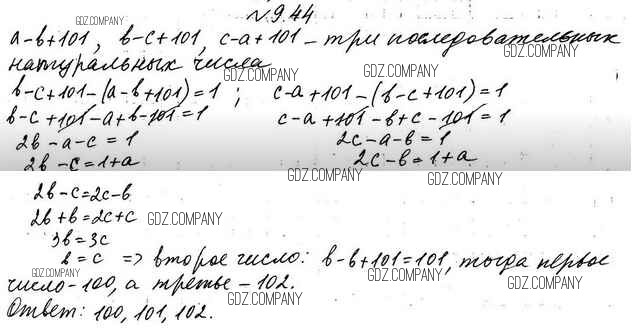 №9.44
GDZ.COMPANY
a-b+101, b-c+101, c-a+101 – три последовательных
GDZ.COMPANY GDZ.COMPANY
натуральных числа
GDZ.COMPANY
b-c+101-(a-b+101)=1; c-a+101-(b-c+101)=1
GDZ.COMPANY GDZ.COMPANY
b-c+101-a+b-101=1 c-a+101-b+c-101=1
2b-a-c=1 2c-a-b=1
2b-c=1+a 2c-b=1+a
GDZ.COMPANY GDZ.COMPANY
2b-c=2c-b
2b+b=2c+c GDZ.COMPANY
3b=3c
b=c => второе число: b-b+101=101, тогда первое
GDZ.COMPANY GDZ.COMPANY GDZ.COMPANY
число-100, а третье – 102.
GDZ.COMPANY
Ответ: 100, 101, 102.